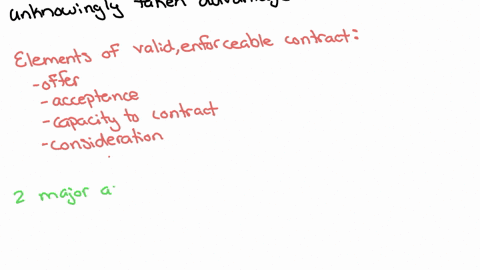 unknowingly taken advantage
Elements of valid, enforceable contract:
-offer
-acceptance
-capacity to contract
-consideration
2 major a